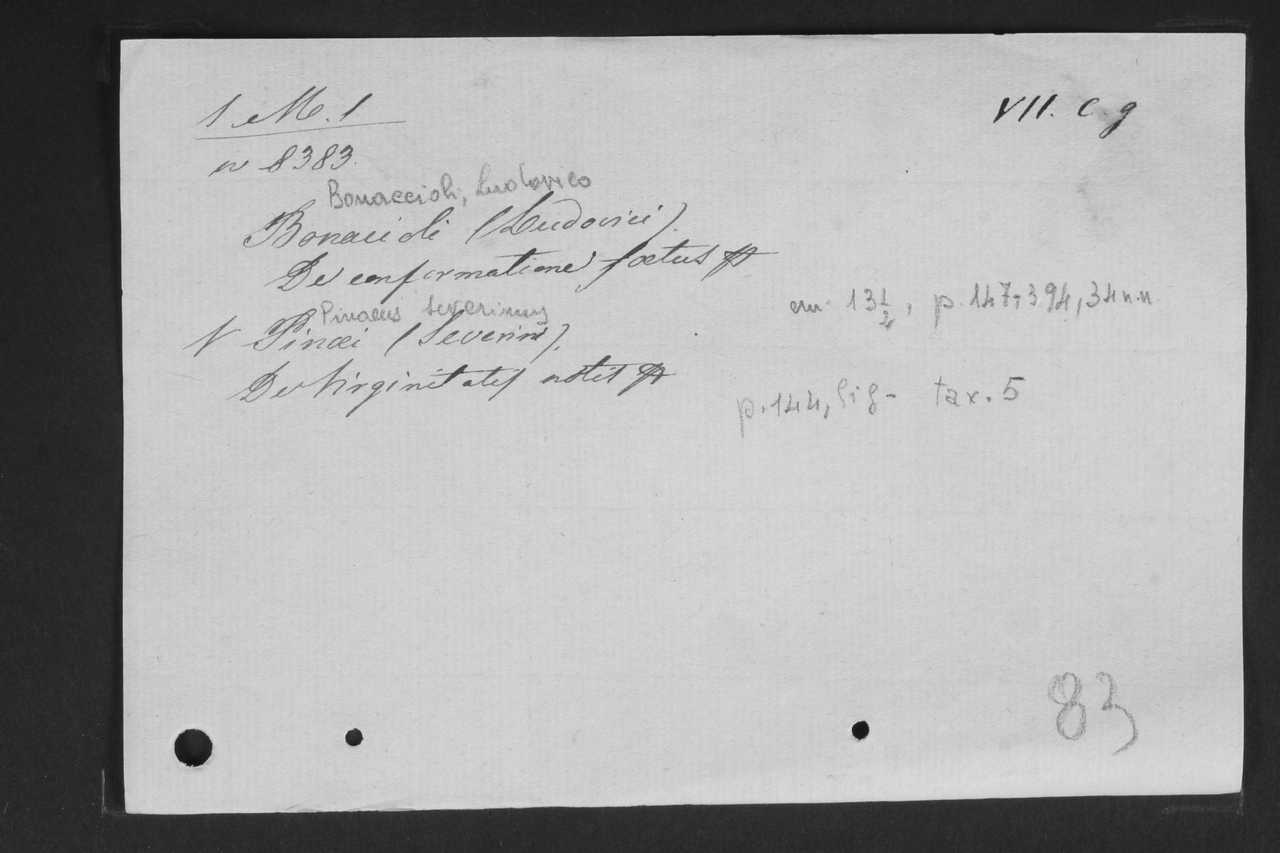 1 M. 1
VII. C. g
n 8383.
Bonaccioli, Ludovico
Bonacioli (Ludovici).
De conformatione foetus
cm 13 1/2, p. 147-394, 34 n.n.
Pinaeus Severinus
Pinæi (Severini).
De Virginitatis notis
p. 144, fig- tax. 5
83